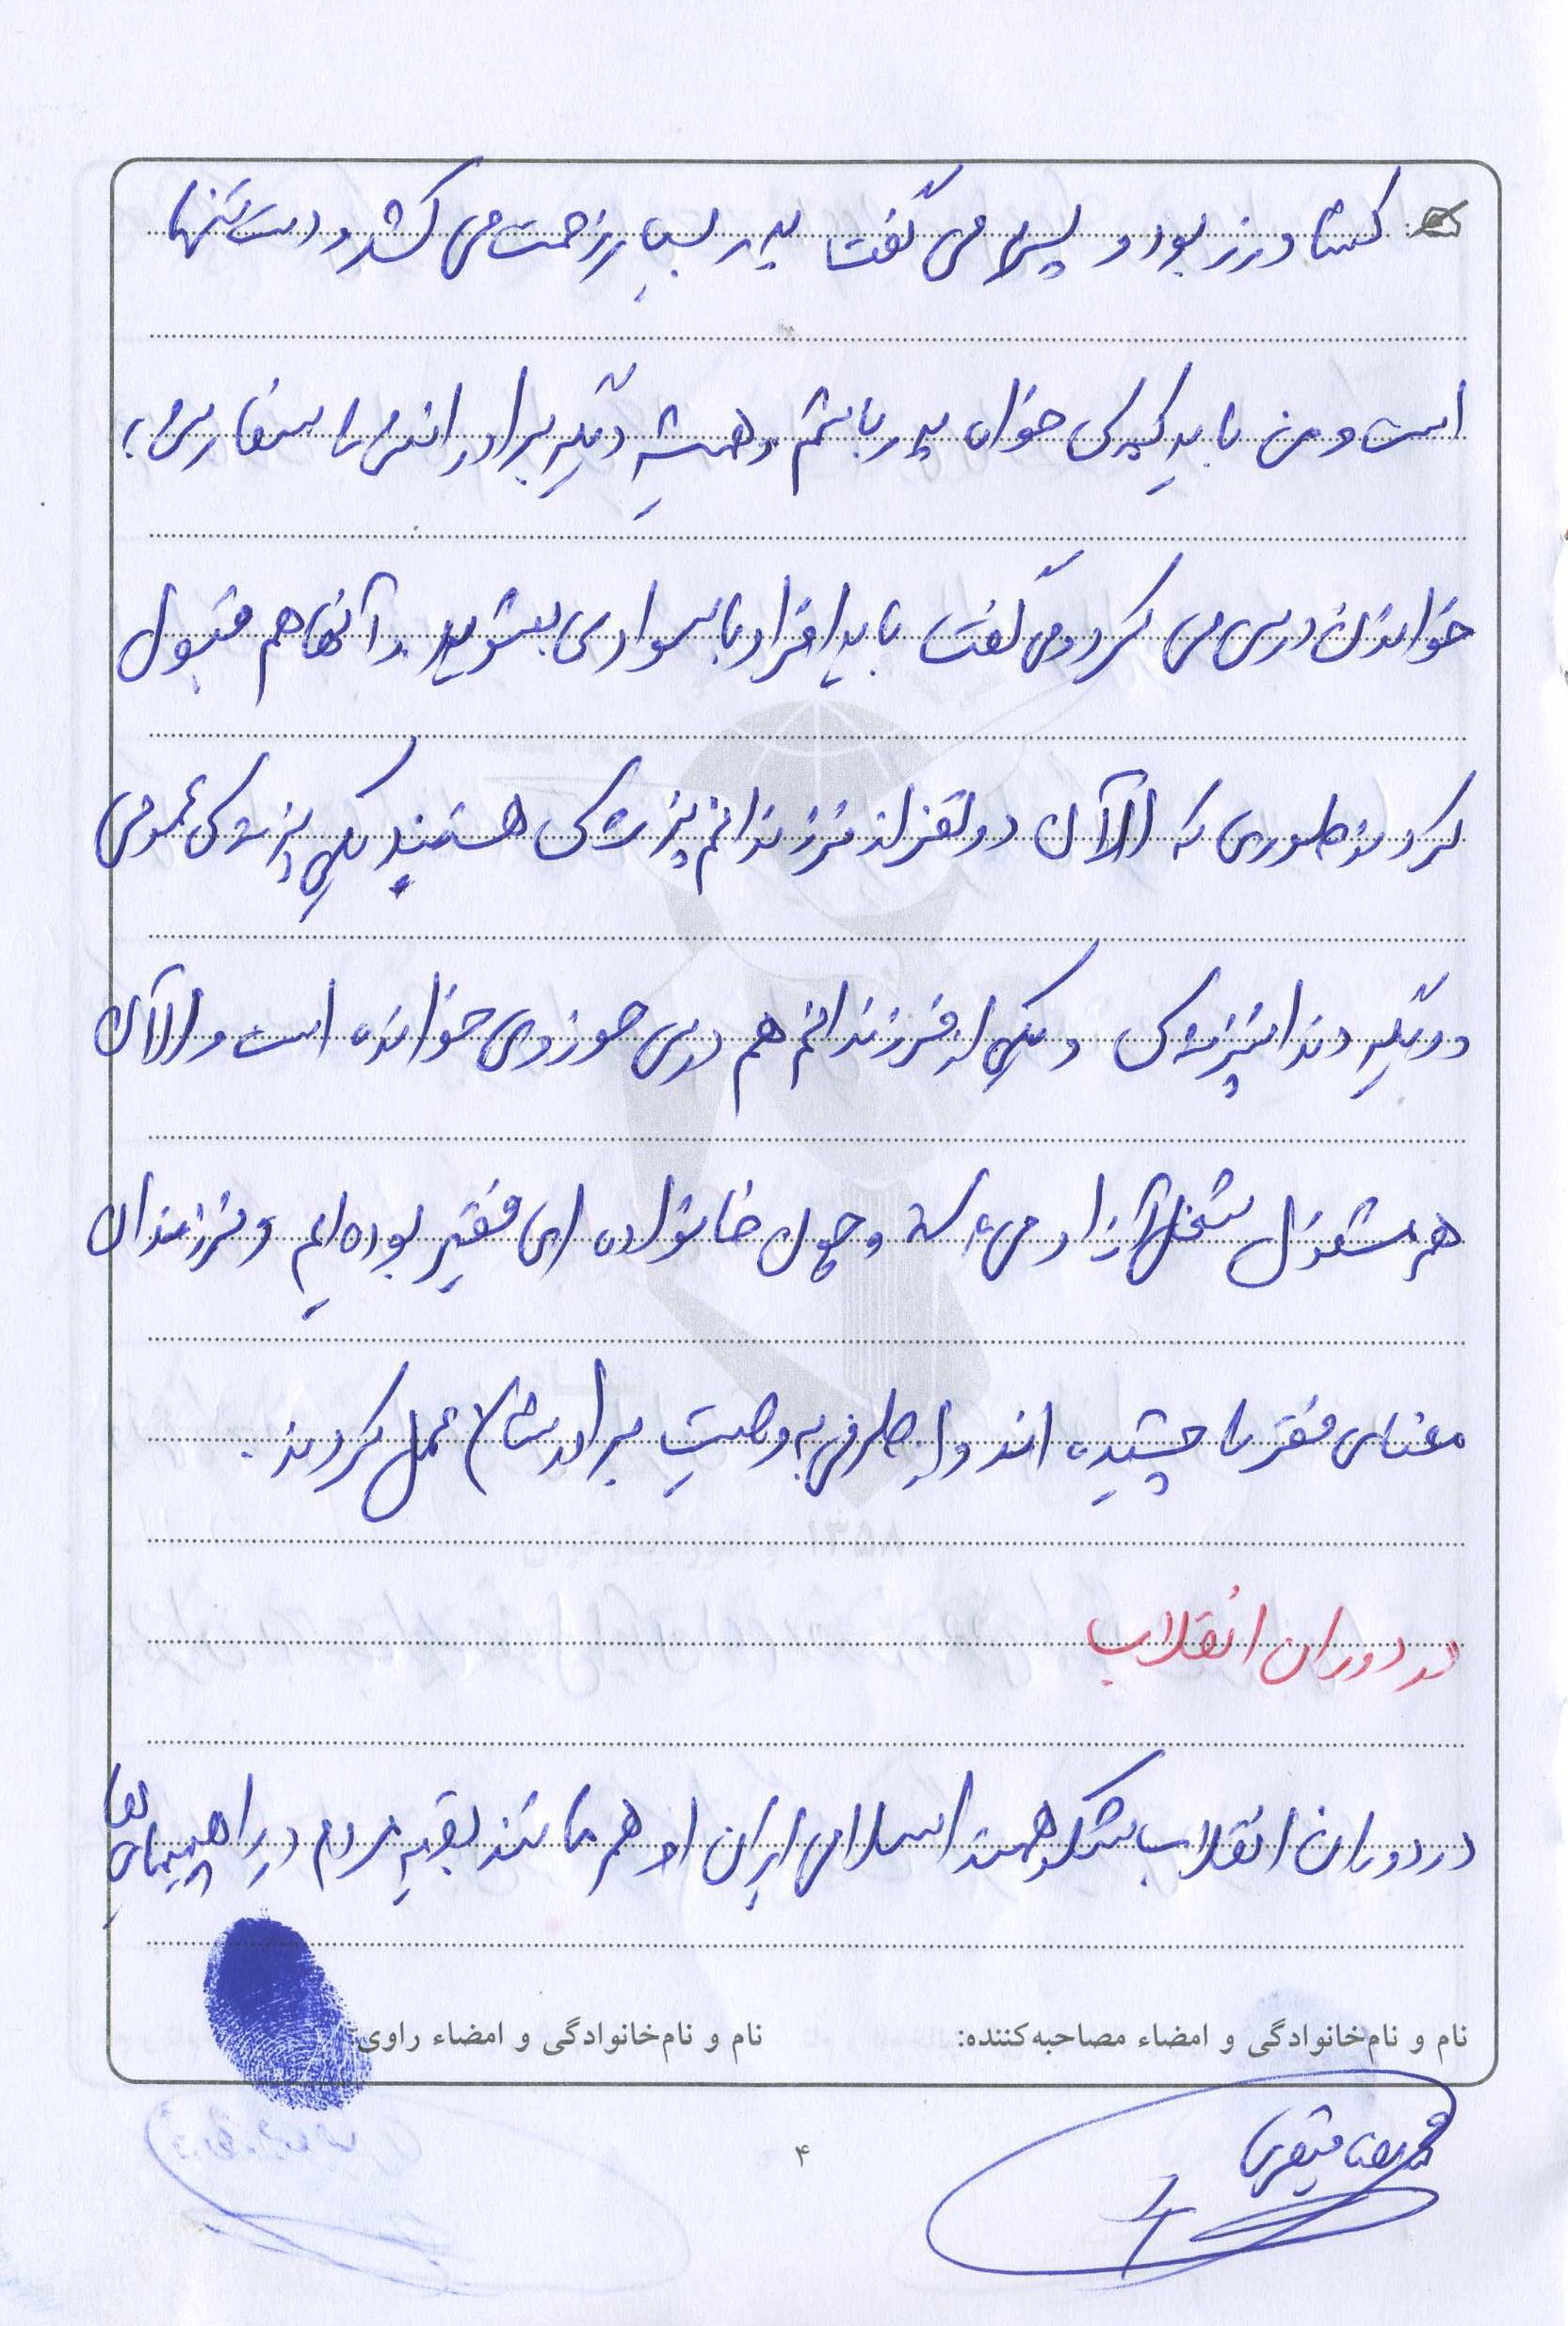 کشاورز بود و پسرم می گفت پدر بسیار زحمت می کشد و دست تنها
است و من باید کمک خوان پدر باشم و همیشه دیگر برادرانش را سفارش به
خواندن درس می کرد و می گفت باید افراد با سوادی بشوید و آنها هم قبول
کردند طوری که الآن دو نفر از فرزندانم پزشک هستند یکی پزشک عمومی
و دیگر دندانپزشک و یکی از فرزندانم هم درس حوزوی خوانده است و الآن
هم مشغول شغل آزاد می باشد و چون خانواده ای فقیر بوده ایم و فرزندان
معنای فقر را چشیده اند و از طرفی به وصیت برادرشان عمل کردند.
در دوران انقلاب
در دوران انقلاب شکوهمند اسلامی ایران او هم مانند بقیه مردم در راهپیمایی ها
نام و نام‌خانوادگی و امضاء مصاحبه‌کننده:
نام و نام‌خانوادگی و امضاء راوی:
۴